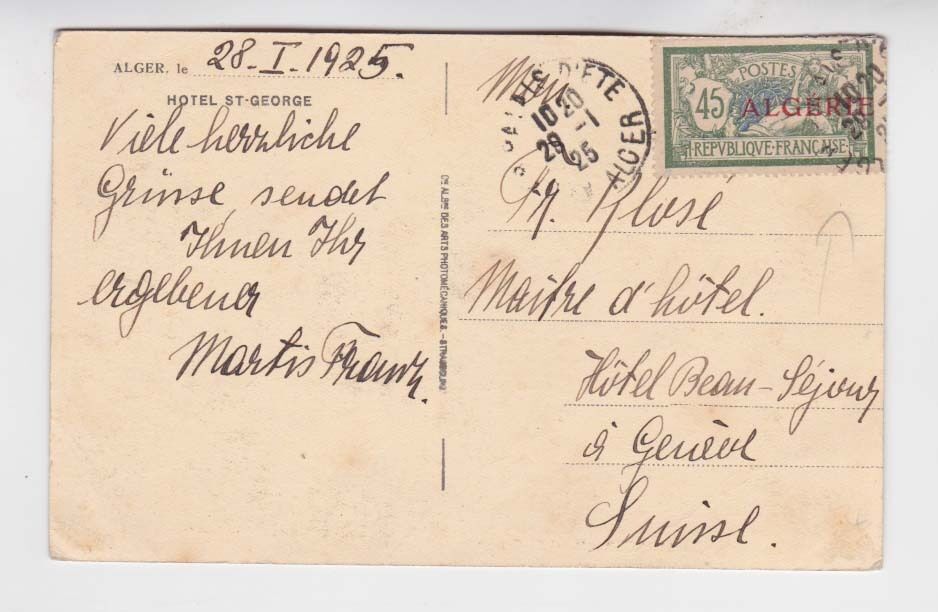 ALGER, le 28-I.1925.
HOTEL ST-GEORGE
Viele herzliche
Grüsse sendet
Ihnen Ihr
ergebener
Martis Franz.
DES ARTS PHOTOMÉCANIQUES. - STRASBOURG
PALAIS D'ÉTÉ
ALGER
10 20
29 -1
25
POSTES
45
ALGÉRIE
REPVBLIQVE·FRANÇAISE
10 20
Fr. Klosé
Maître d'hôtel.
Hôtel Beau-Séjour
à Genève
Suisse.